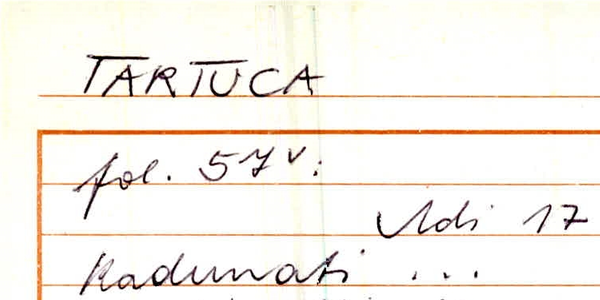 TARTUCA
fol. 57v:
Adi 17
Radunati ...